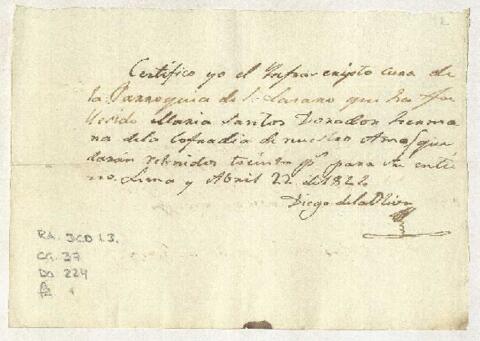 42
Certifico yo el Infraescripto cura de
la Parroquia de S. Lazaro que ha fa
llecido Maria Santos Donadon herma
na dela Cofradia de nuestro Amo, que
daran rebnidos treinta p.s para su entie
rro. Lima y Abril 22 de 1822
Diego de la
RA. JCD L3.
CG. 37
DO 224
f 1